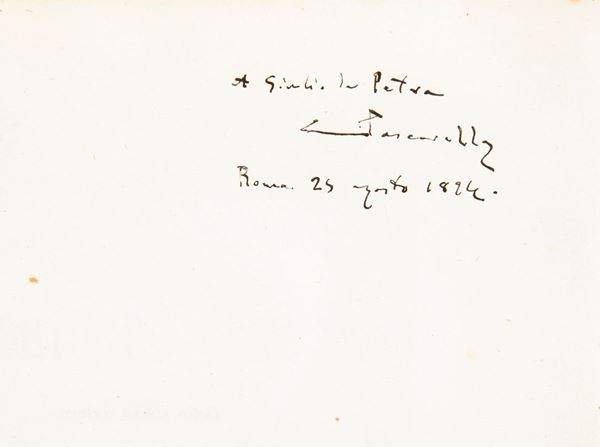 A Giulio de Petra
C. Pascarella
Roma 25 agosto 1894.